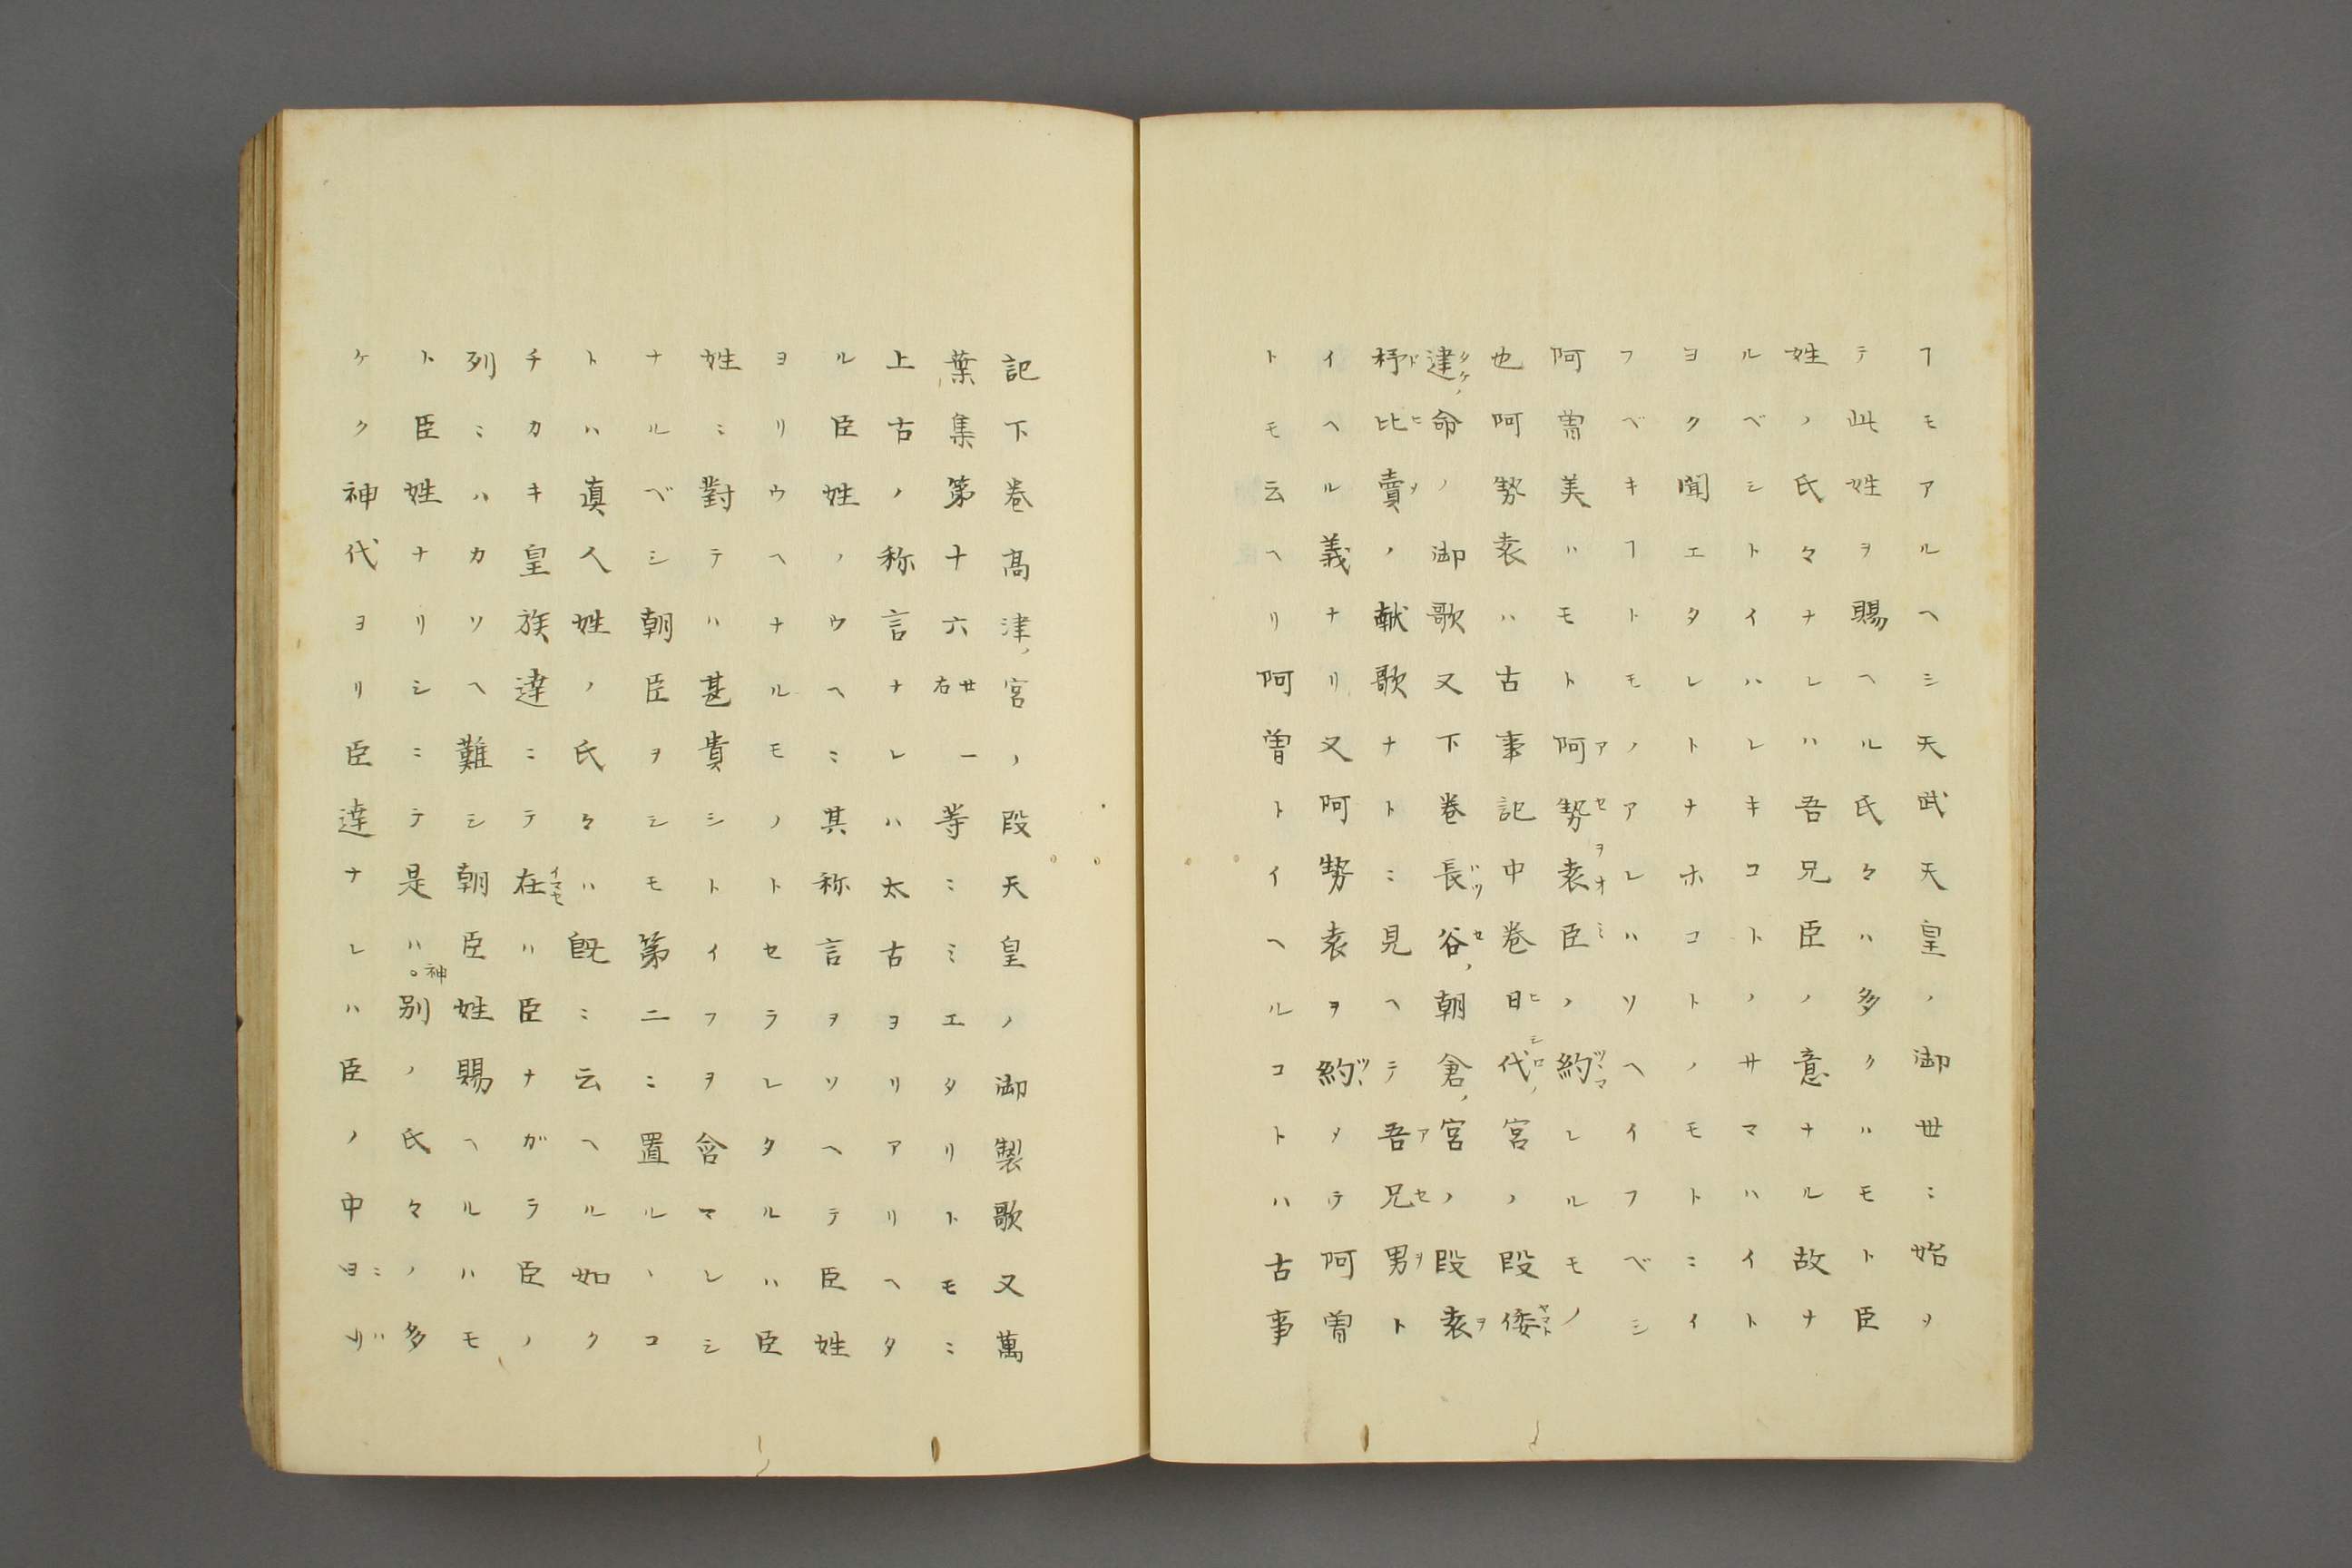 フモアルヘシ天武天皇ノ御世ニ始ヲ
テ此姓ヲ賜ヘル氏々ハ多クハモト臣
姓ノ氏々ナレハ吾兄臣ノ意ナル故ナ
ルベシトイハレキコトノサマハイト
ヨク聞エタレトナホコトノモトニイ
フベキフトモノアレハソヘイフベシ
阿曽美ハモト阿勢袁臣ノ約レルモノ
也阿勢袁ハ古事記中巻日代宮ノ段倭
建命ノ御歌又下巻長谷朝倉宮ノ段袁
杼比賣ノ献歌ナトニ見ヘテ吾兄男ト
イヘル義ナリ又阿勢袁ヲ約メテ阿曽
トモ云ヘリ阿曽トイヘルコトハ古事
記下巻髙津宮ノ段天皇ノ御製歌又萬
葉集第十六廿一右等ニミエタリトモミ
上古ノ称言ナレハ太古ヨリアリヘタ
ル臣姓ノウヘニ其称言ヲソヘテ臣姓
ヨリウヘナルモノトセラレタルハ臣
姓ニ對テハ甚貴シトイフヲ含マレシ
ナルベシ朝臣ヲシモ第二ニ置ルヽコ
トハ真人姓ノ氏々ハ既ニ云ヘル如ク
チカキ皇族達ニテ在ハ臣ナガラ臣ノ
列ニハカソヘ難シ朝臣姓賜ヘルハモ
ト臣姓ナリシニテ是ハ神別ノ氏々ノ多
ケク神代ヨリ臣達ナレハ臣ノ中ニ